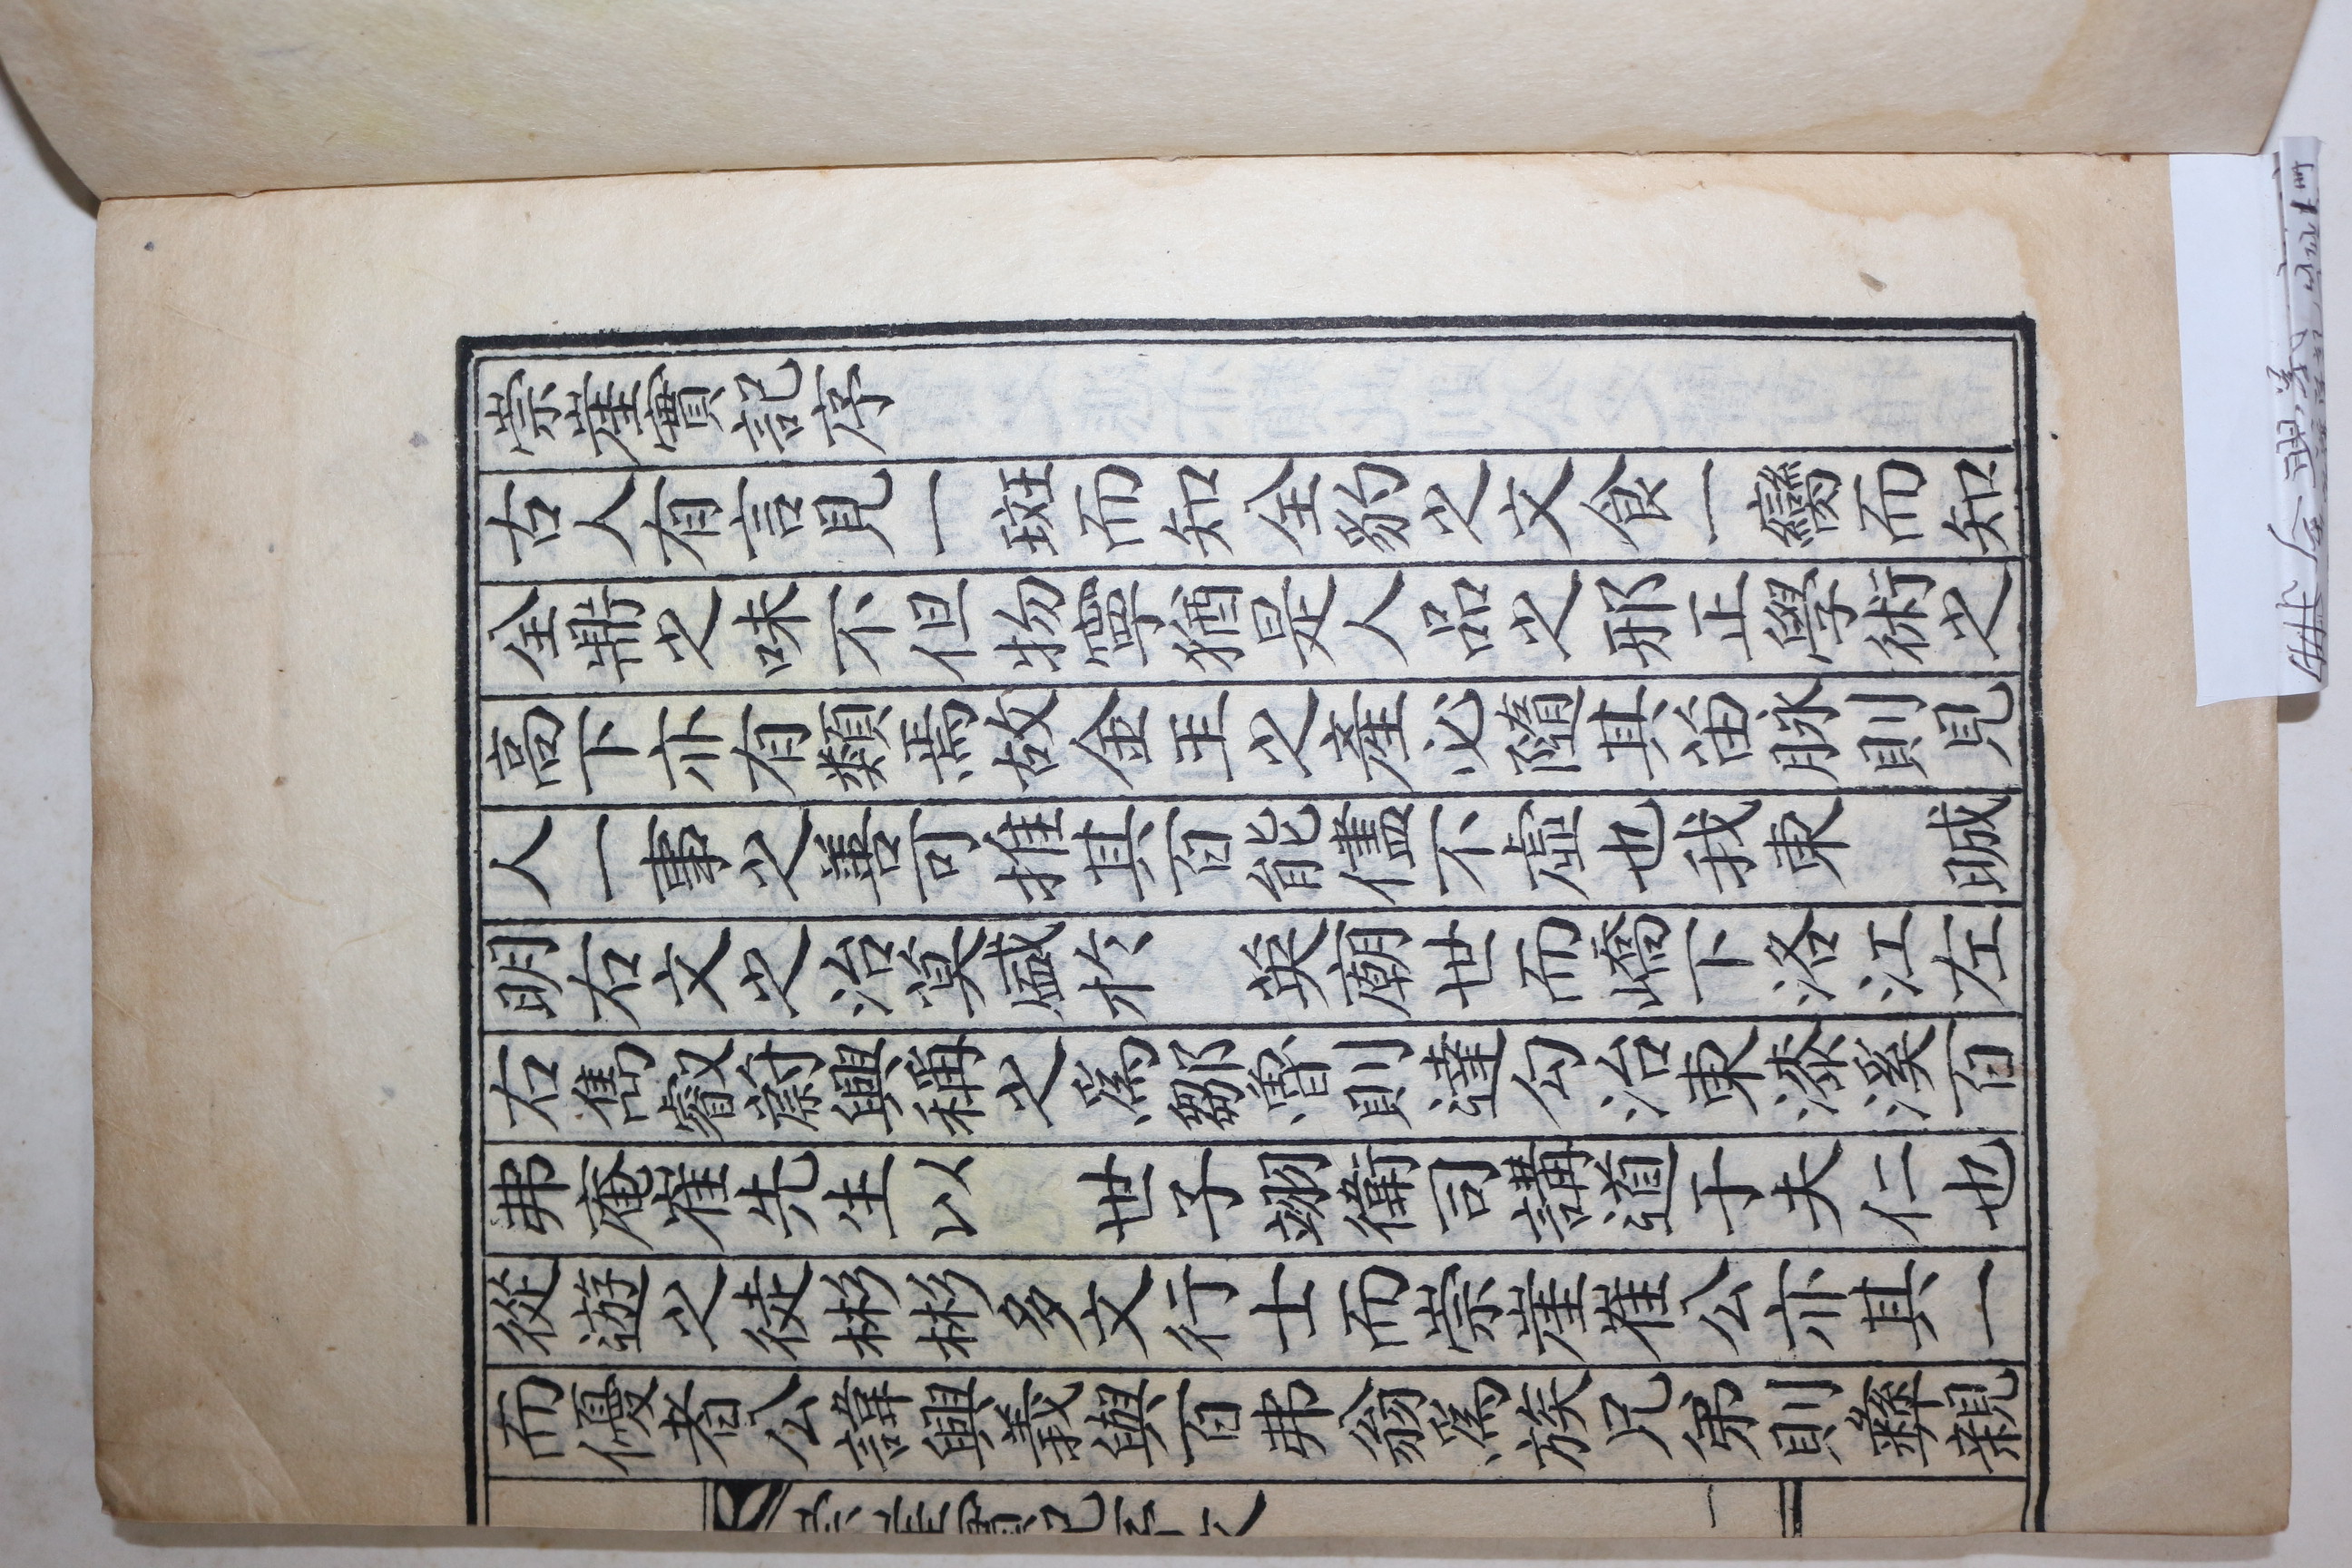 崇崖實記序
古人有言見一斑而知全豹之文食一臠而知
全鼎之味不但物寧猶是人品之邪正學術之
高下亦有類焉故金玉之產必隨其苗脉則見
人一事之善可推其百能儘不虛也我東 晠
明右文之治莫盛於 英廟世而嶠下洛江左
右雋叡蔚興稱之爲鄒魯則達勾治東漆溪百
弗庵崔先生以 世子翊衛司講道于夫仁也
從遊之徒彬彬多文行士而崇崖崔公亦其一
而優者公諱興義與百弗翁爲族兄弟則彝親
一